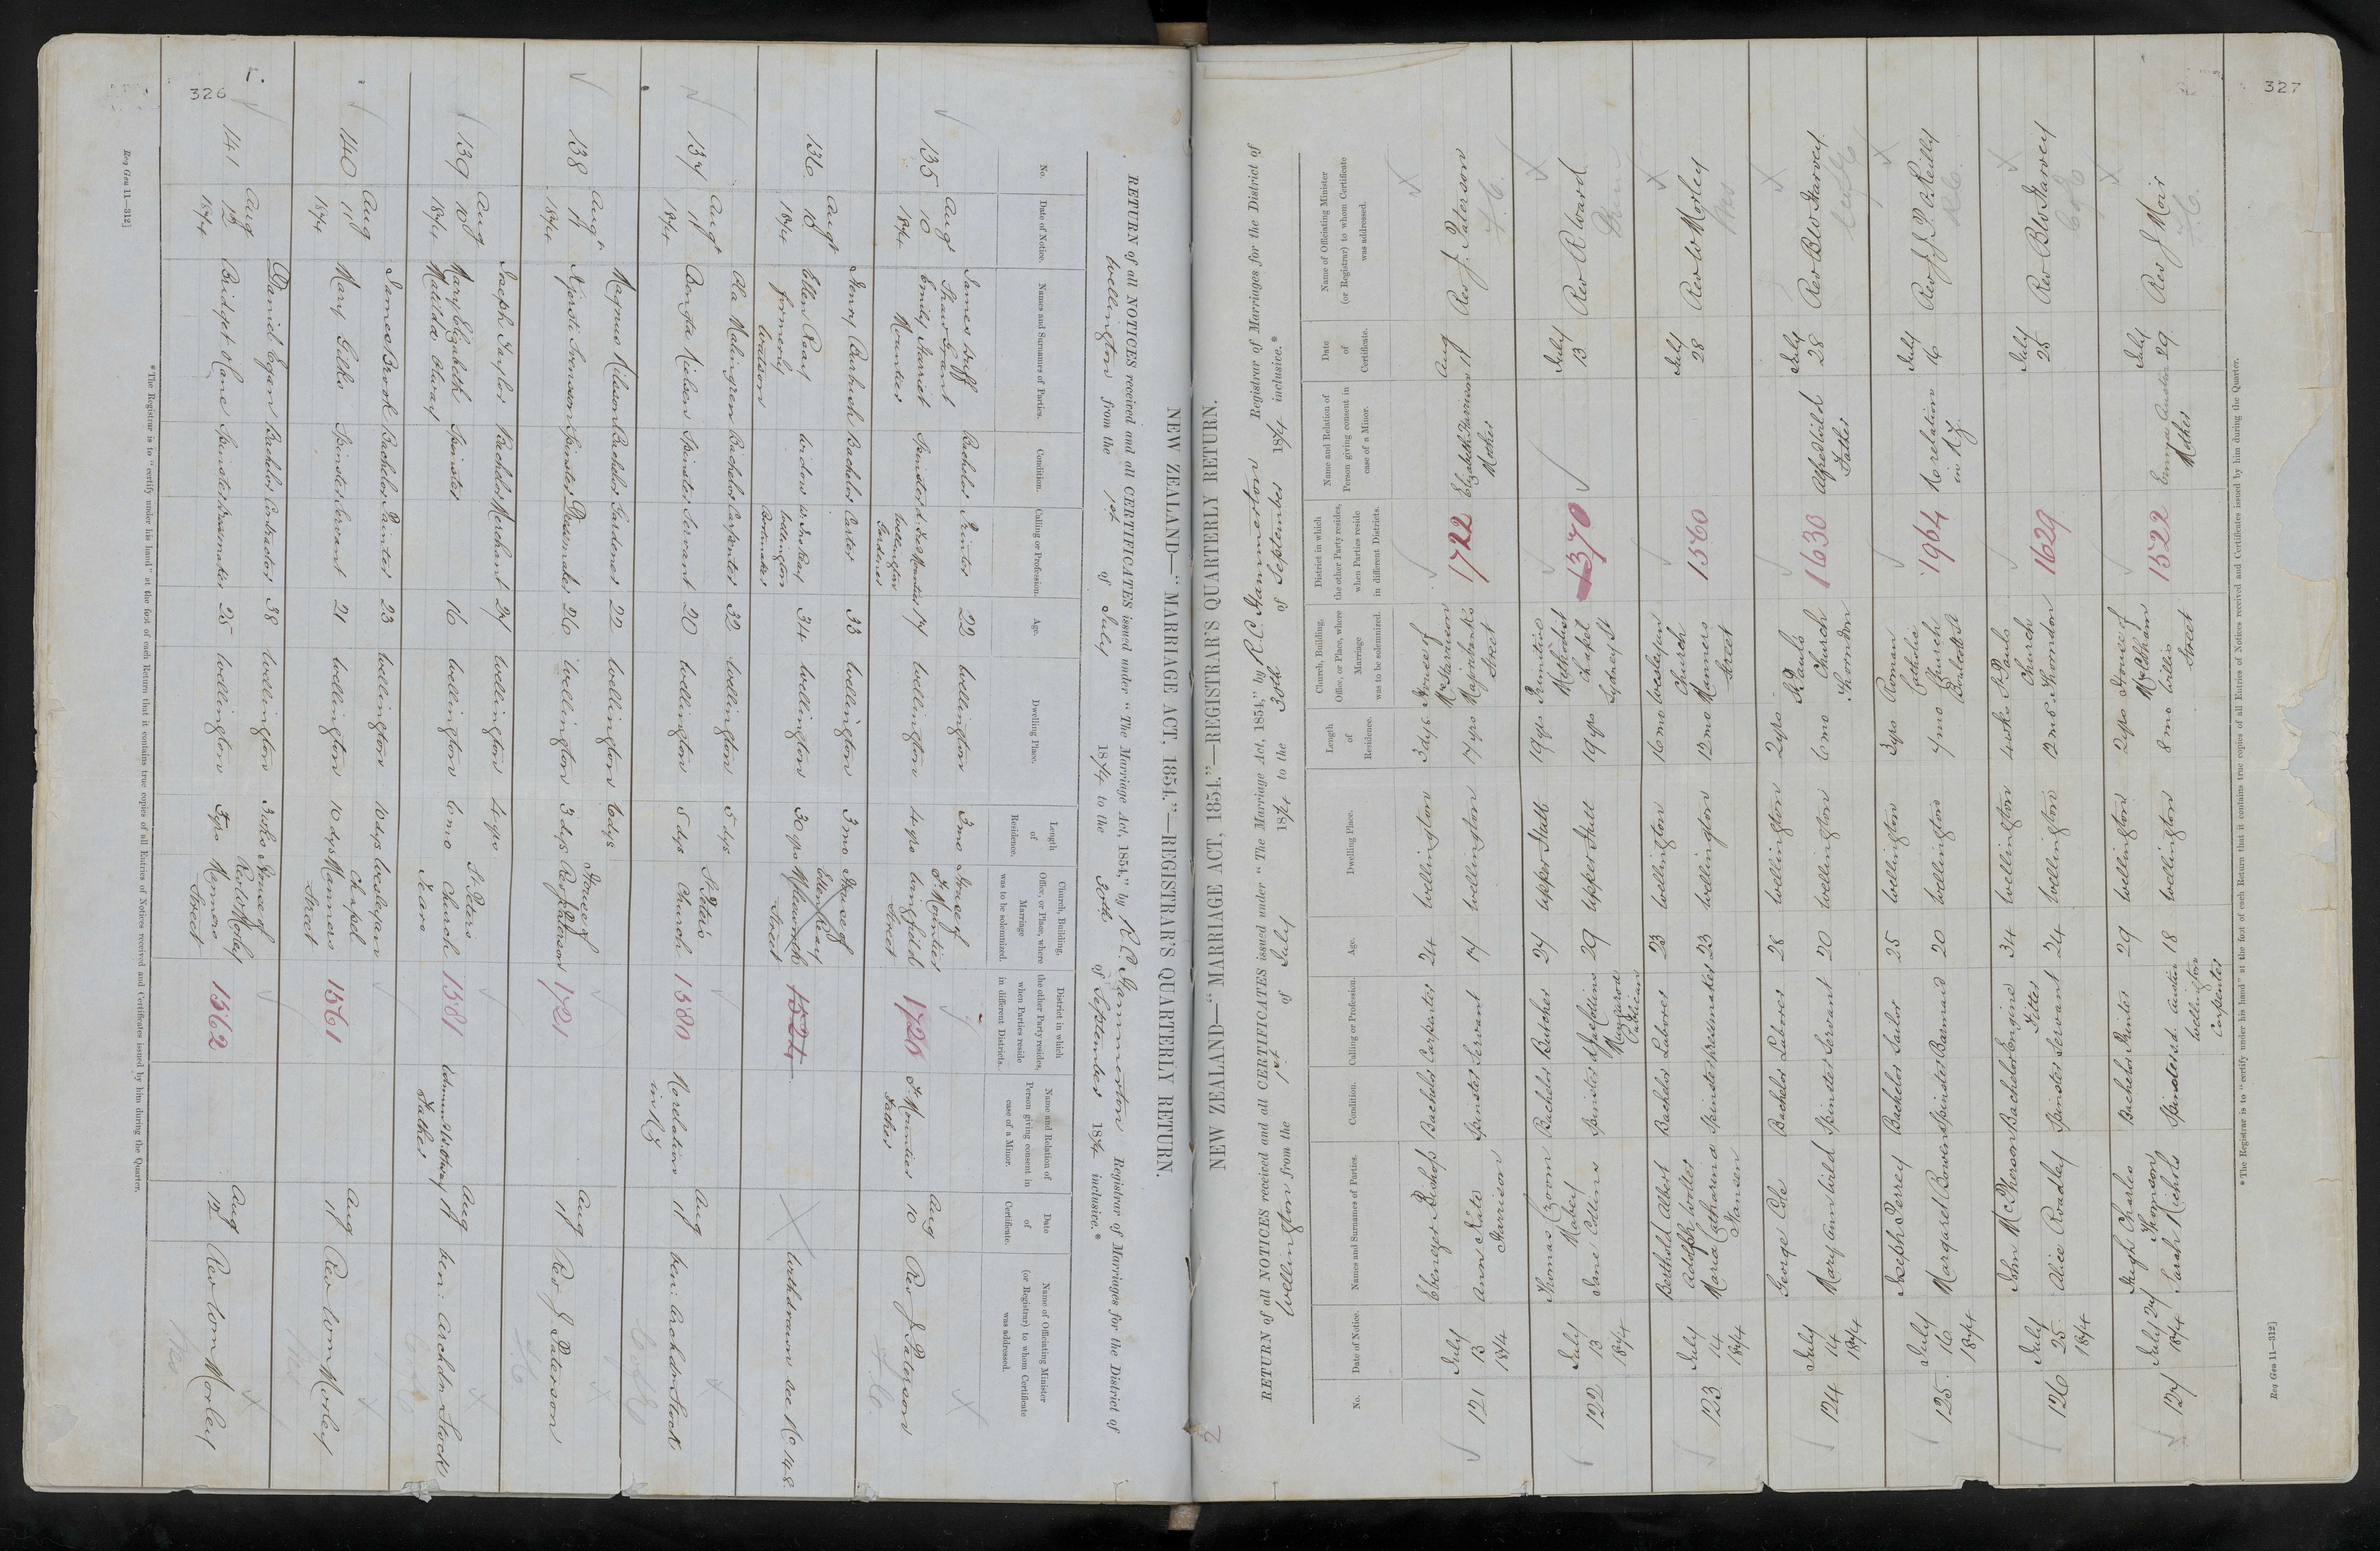 326
NEW ZEALAND—"MARRIAGE ACT, 1854."—REGISTRAR'S QUARTERLY RETURN.
RETURN of all NOTICES received and all CERTIFICATES issued under "The Marriage Act, 1854," by R. C. Hammerton Registrar of Marriages for the District of
Wellington from the 1st of July 1874 to the 30th of September 1874 inclusive.*
No. Date of Notice. Names and Surnames of Parties. Condition. Calling or Profession. Age. Dwelling Place. Length of Residence. Church, Building, Office, or Place, where Marriage was to be solemnized. District in which the other Party resides, when Parties reside in different Districts. Name and Relation of Person giving consent in case of a Minor. Date of Certificate. Name of Officiating Minister (or Registrar) to whom Certificate was addressed.
135 Augt 10 1874 James Duff Shaw Grant Bachelor Printer 22 Wellington 3 mo House of
Emily Harriet Mounties Spinster Wellington Gardener 17 Wellington 4 yrs J. Mounties Street 1720 J. Mounties Father Aug 10 Rev J Paterson
F.C.
136 Augt 10 1874 Henry Bachelor Carter 33 Wellington 3 mo House of
Ellen Reay formerly Watson Widow Wellington 34 Wellington 30 yrs Ellen Reay Street withdrawn see No 148
137 Augt 11 1874 Ola Malingren Bachelor Carpenter 32 Wellington 5 dys St Peter's
Bengta Nielsen Spinster Servant 20 Wellington 5 dys Church 1380 No relation in NZ Aug 11 Ven: Archdn Stock
138 Augt 11 1874 Magnus Nilsson Bachelor Gardener 22 Wellington 6 dys House of
Spinster Dressmaker 26 Wellington 3 dys Rev J Paterson 1721 Aug 11 Rev J. Paterson
F.C
139 Aug 10 1874 Joseph Taylor Bachelor Merchant 27 Wellington 4 yrs St Peters
Mary Elizabeth Matilda Otway Spinster 16 Wellington 6 mo Church Te Aro 1381 Otway Father Aug 11 Ven: Archdn Stock
140 Aug 11 1874 James Brook Bachelor Painter 23 Wellington 10 dys Wesleyan Chapel
Mary Gilks Spinster Servant 21 Wellington 10 dys Manners Street 1561 Aug 11 Rev Wm Morley
141 Aug 12 1874 Daniel Egan Bachelor Contractor 38 Wellington 3 wks House of
Bridget Lane Spinster Dressmaker 25 Wellington 5 yrs Rev W Morley Manners Street 1562 Aug 12 Rev Wm Morley
*The Registrar is to "certify under his hand" at the foot of each Return that it contains true copies of all Entries of Notices received and Certificates issued by him during the Quarter.
Reg Gen 11—312]
327
2
NEW ZEALAND—"MARRIAGE ACT, 1854."—REGISTRAR'S QUARTERLY RETURN.
RETURN of all NOTICES received and all CERTIFICATES issued under "The Marriage Act, 1854," by R. C. Hammerton Registrar of Marriages for the District of
Wellington from the 1st of July 1874 to the 30th of September 1874 inclusive.*
No. Date of Notice. Names and Surnames of Parties. Condition. Calling or Profession. Age. Dwelling Place. Length of Residence. Church, Building, Office, or Place, where Marriage was to be solemnized. District in which the other Party resides, when Parties reside in different Districts. Name and Relation of Person giving consent in case of a Minor. Date of Certificate. Name of Officiating Minister (or Registrar) to whom Certificate was addressed.
121 July 13 1874 Ebenezer Bishop Bachelor Carpenter 24 Wellington 3 dys House of
Ann Kate Harrison Spinster Servant 17 Wellington 17 yrs Mrs Harrison Majoribanks Street 1722 Elizabeth Harrison Mother Aug 11 Rev J. Paterson
F.C.
122 July 13 1874 Thomas Mabey Bachelor Butcher 27 Upper Hutt 19 yrs Primitive Methodist
Jane Collins Spinster 29 Upper Hutt 19 yrs Chapel Sydney St 1370 July 13 Rev R Ward
123 July 14 1874 Berthold Albert Adolph Wolter Bachelor Laborer 23 Wellington 16 mo Wesleyan Church
Maria Catharina Hansen Spinster Dressmaker 23 Wellington 12 mo Manners Street 1560 July 28 Rev W Morley
124 July 14 1874 George Cole Bachelor Laborer 28 Wellington 2 yrs St Pauls
Mary Ann Wild Spinster Servant 20 Wellington 6 mo Church Thorndon 1630 Alfred Wild Father July 28 Rev B W Harvey
125 July 16 1874 Joseph Perrey Bachelor Sailor 25 Wellington 3 yrs Roman Catholic
Margaret Bowers Spinster Barmaid 20 Wellington 7 mo Church Boulcott St 1964 No relation in N.Z. July 16 Rev J. J. P. O'Reilly
RC
126 July 25 1874 John McPherson Bachelor Engine Fitter 34 Wellington 4 wks St Pauls
Alice Roadley Spinster Servant 24 Wellington 12 mo Church Thorndon 1629 July 25 Rev B W Harvey
127 July 27 1874 Hugh Charles Thomson Bachelor Printer 29 Wellington 2 yrs House of
Sarah Nichols Spinster Wellington Carpenter 18 Wellington 8 mo Willis Street 1522 Emma Austin Mother July 29 Rev J Moir
*The Registrar is to "certify under his hand" at the foot of each Return that it contains true copies of all Entries of Notices received and Certificates issued by him during the Quarter.
Reg Gen 11—312]